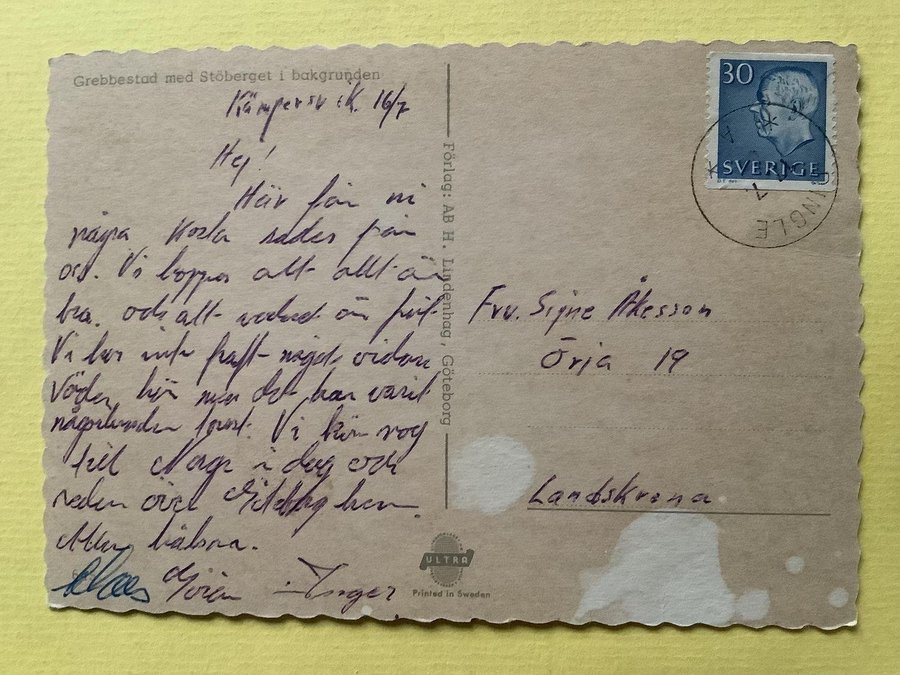 Grebbestad med Stöberget i bakgrunden
Kämpersvik 16/7
Hej!
Här får ni
några korta rader från
oss. Vi hoppas att allt är
bra. och att vädret är fint
Vi har inte haft något vidare
Väder här men det har varit
någorlunda torrt. Vi kör nog
till Norge i dag och
sedan över Göteborg hem
hälsn.
Claes Göran Inger
Förlag: AB H. Lindenhag, Göteborg
ULTRA
Printed in Sweden
30
SVERIGE
Fru. Signe Åkesson
Örja 19
Landskrona